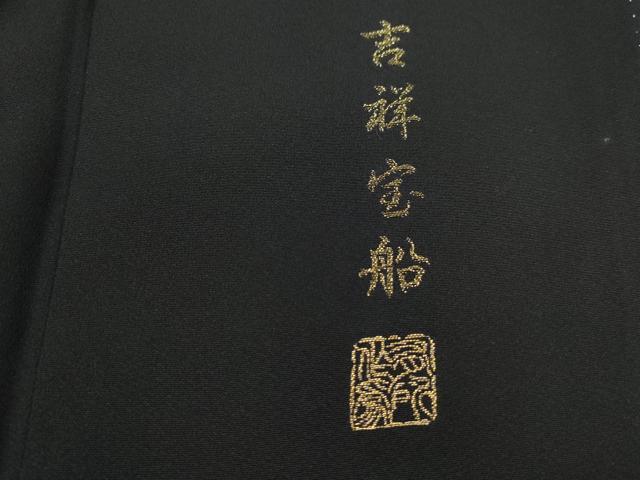 吉祥宝船